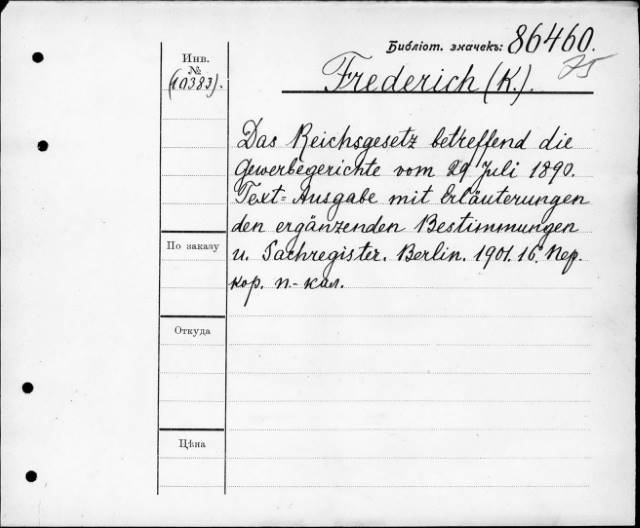 Библіот. значекъ: 86460.
75
Инв.
№
(10383).
Frederich (K.).
Das Reichsgesetz betreffend die
Gewerbegerichte vom 29 Juli 1890.
Text-Ausgabe mit Erläuterungen
den ergänzenden Bestimmungen
u. Sachregister. Berlin. 1901. 16. Пер.
кор. п.-кал.
По заказу
Откуда
Цѣна